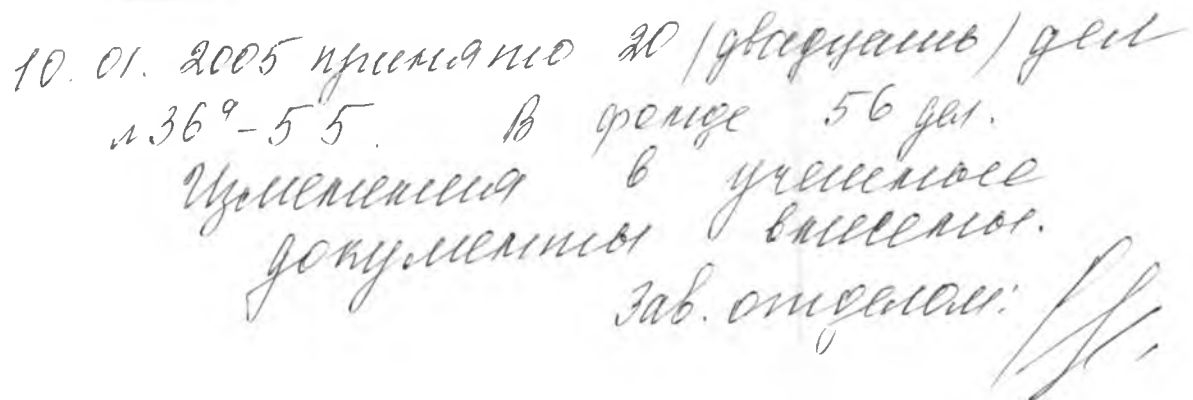 10.01.2005 принято 20 (двадцать) дел
л 36а-55. В фонде 56 дел.
Изменения в учетные
документы внесены.
Зав. отделом: